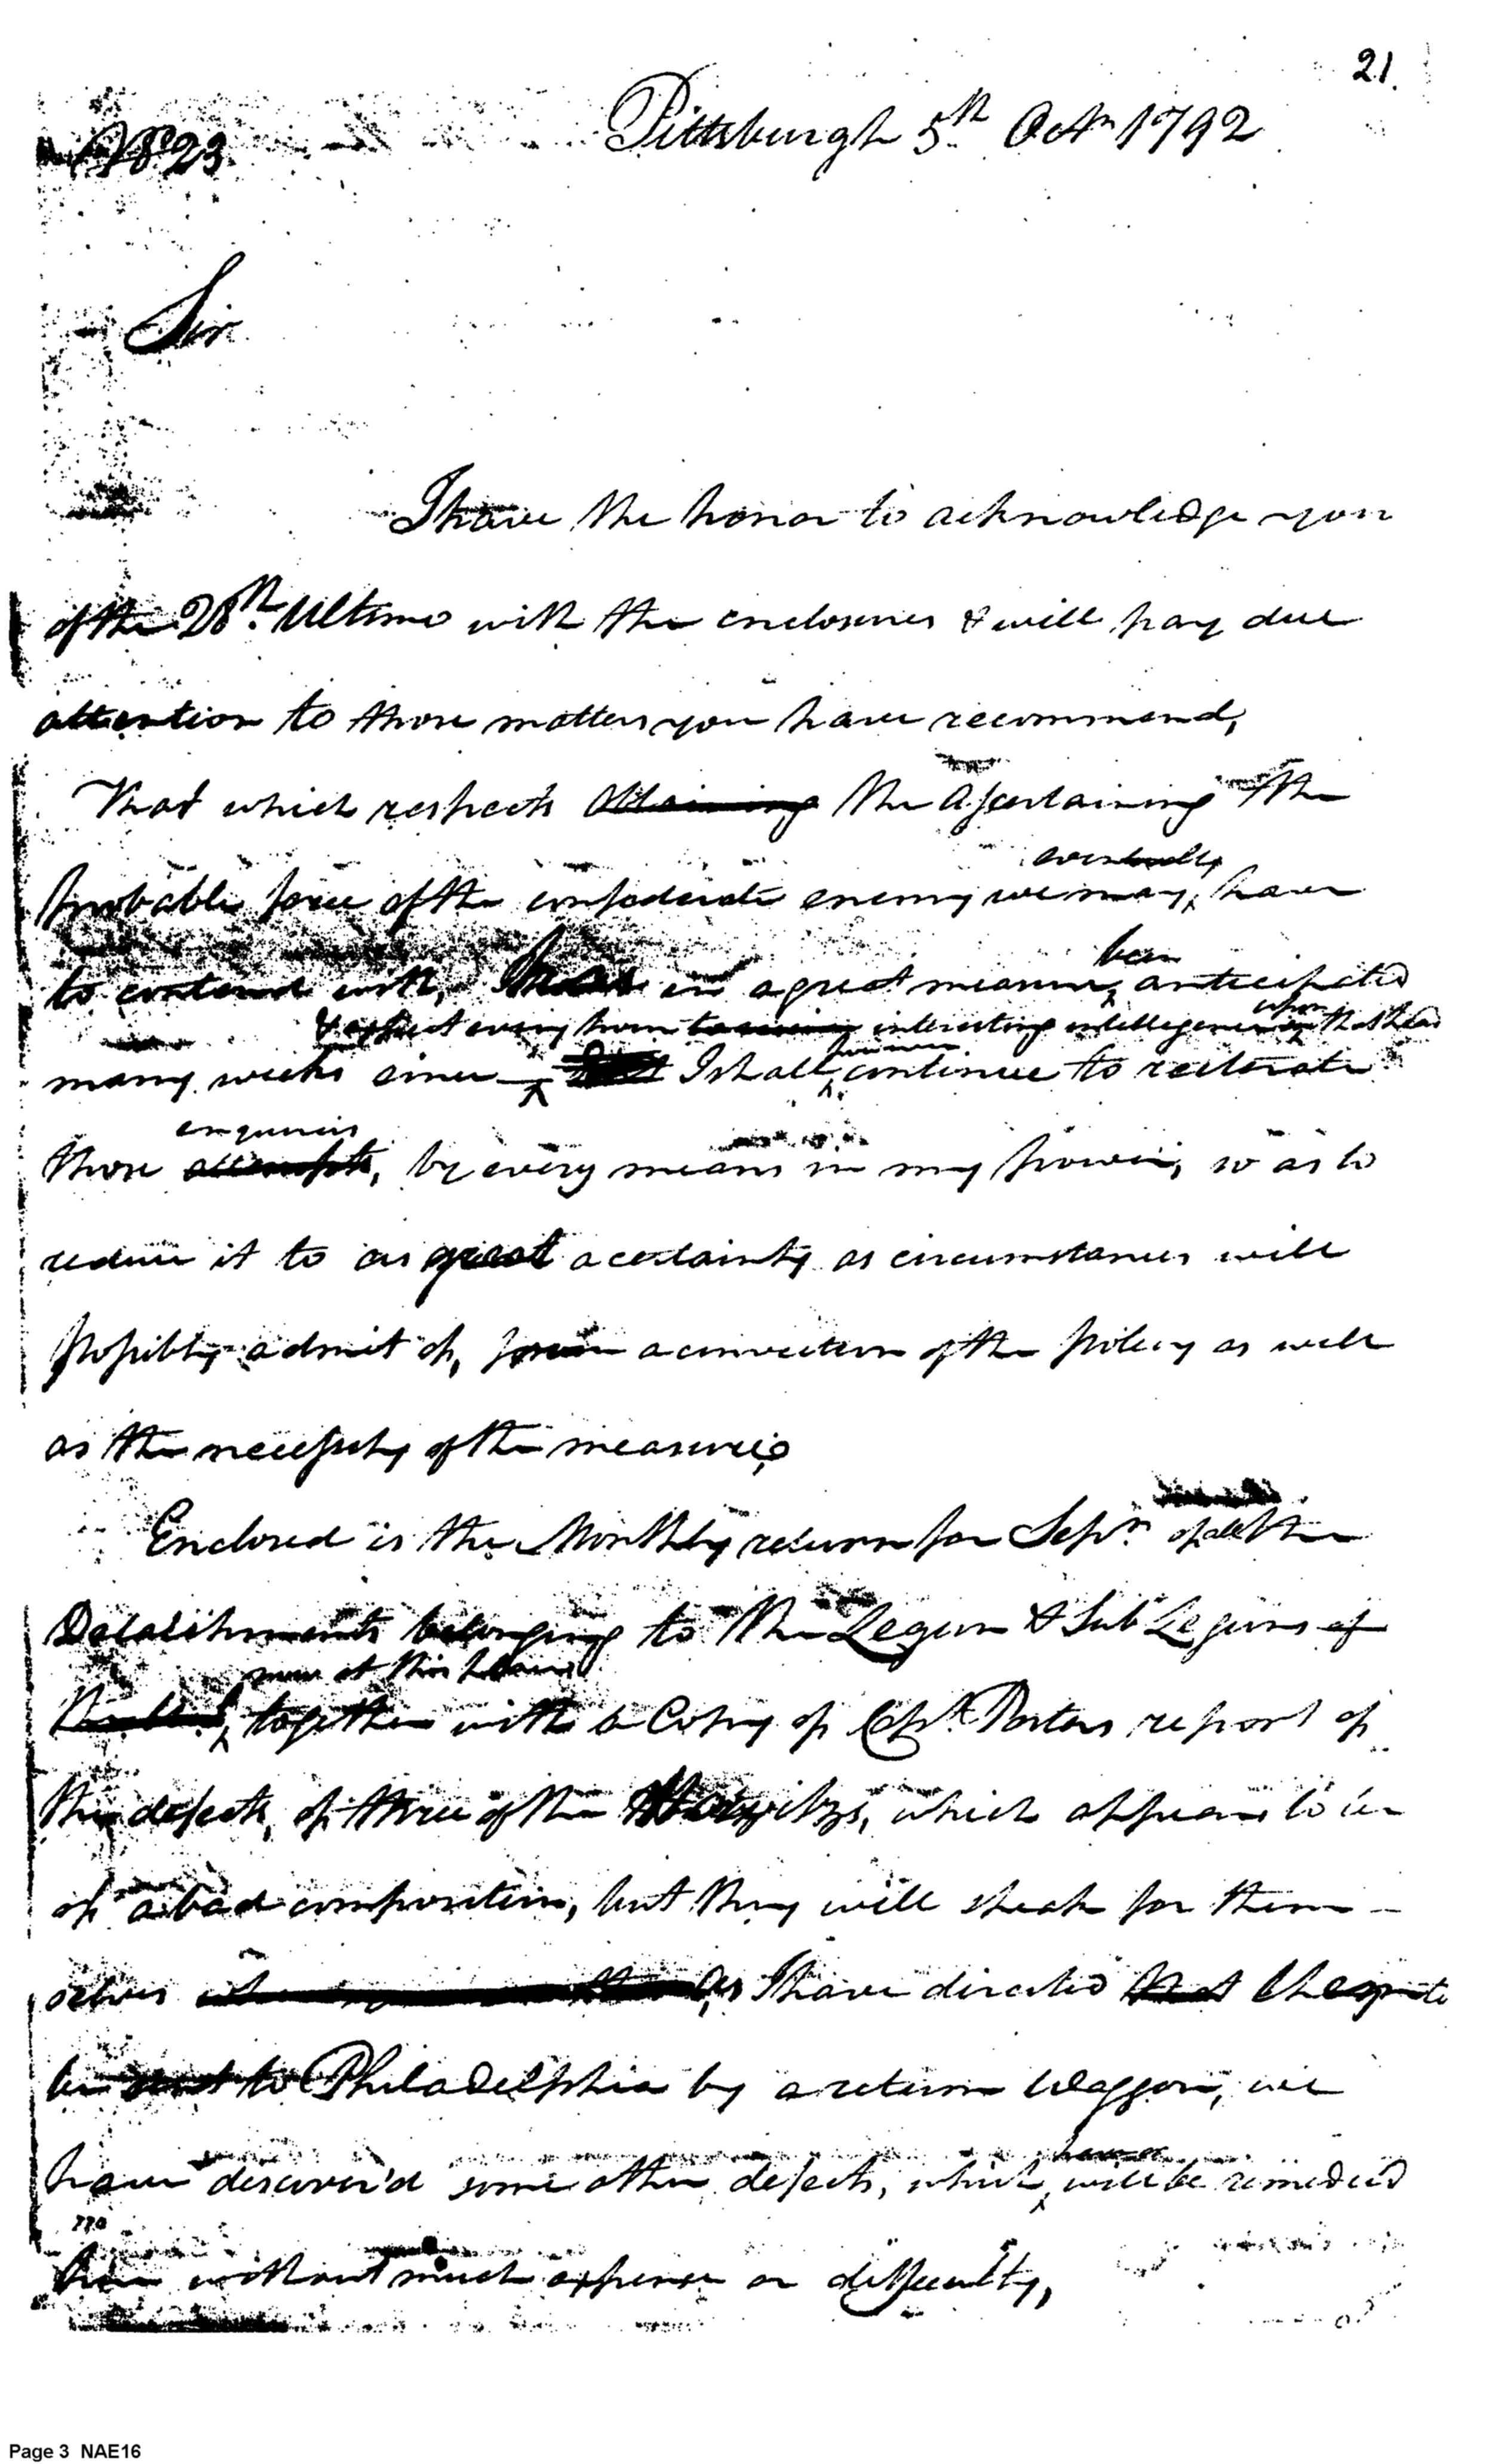 21.
No 23
Pittsburgh 5th Octr 1792
Sir
I have the honor to acknowledge your
of the 28th. Ultimo with the enclosures & will pay due
attention to those matters you have recommend,
That which respects obtaining the Ascertaining the
eventually
Probable force of the confederate enemy we may have
been
to contend with, has in a great measure, anticipated
& expect every hour interesting intelligence upon that head
many weeks since I shall however continue to reiterate
enquiries
those attempts, by every means in my power, so as to
reduce it to as great a certainty as circumstances will
possibly admit of, from a conviction of the policy as well
as the necessity of the measure;
Enclosed is the Monthly return for Sepr. of all the
Detachments belonging to the Legion & Sub Legions of
now at this
together with a Copy of Capt. Porters report of
the defects, of three of the Howitzs, which appears to be
of a bad composition, but they will speak for them-
selves as I have directed that
be sent to Philadelphia by a return Waggon, we
have discover'd some other defects, which however will be remedied
without much expense or difficulty,
Page 3 NAE16